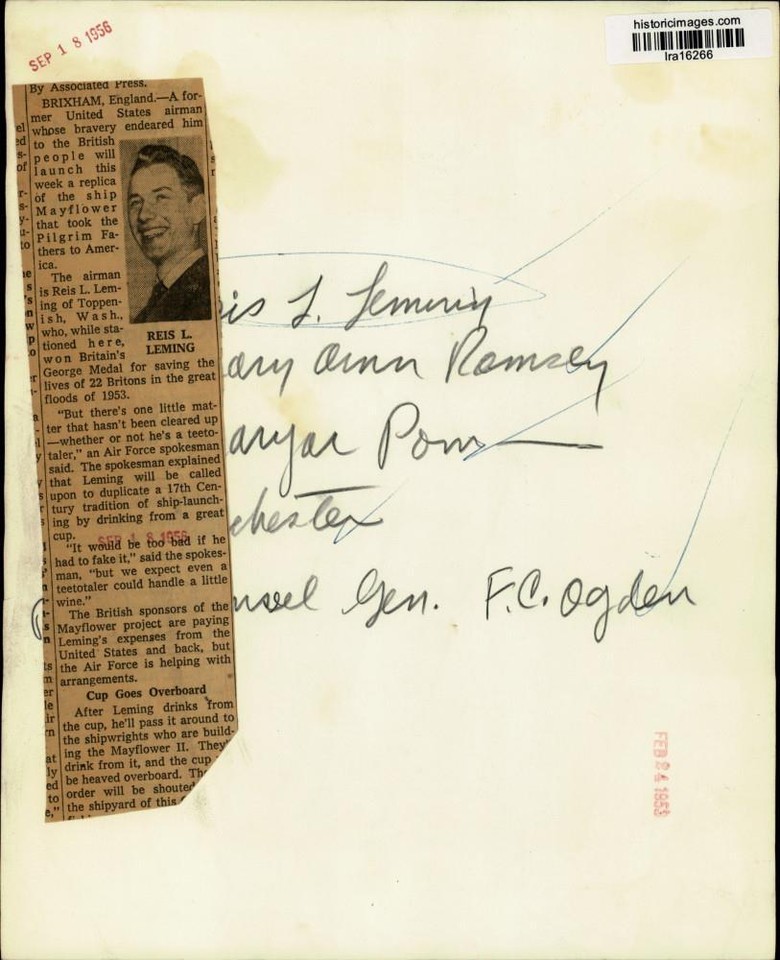 SEP 18 1956
historicimages.com
lra16266
By Associated Press.
BRIXHAM, England.—A for-
mer United States airman
whose bravery endeared him
to the British
people will
launch this
week a replica
of the ship
Mayflower
that took the
Pilgrim Fa-
thers to Amer-
ica.
The airman
is Reis L. Lem-
ing of Toppen-
ish, Wash.,
who, while sta-
tioned here,
won Britain's
REIS L.
LEMING
George Medal for saving the
lives of 22 Britons in the great
floods of 1953.
"But there's one little mat-
ter that hasn't been cleared up
—whether or not he's a teeto-
taler," an Air Force spokesman
said. The spokesman explained
that Leming will be called
upon to duplicate a 17th Cen-
tury tradition of ship-launch-
ing by drinking from a great
cup.
SEP 18 1956
"It would be too bad if he
had to fake it," said the spokes-
man, "but we expect even a
teetotaler could handle a little
wine."
The British sponsors of the
Mayflower project are paying
Leming's expenses from the
United States and back, but
the Air Force is helping with
arrangements.
Cup Goes Overboard
After Leming drinks from
the cup, he'll pass it around to
the shipwrights who are build-
ing the Mayflower II. They'
drink from it, and the cup
be heaved overboard. Th
order will be shouted
the shipyard of this
is L. Leming
ary Ann Ramsey
chester
Gen. F.C. Ogden
FEB 24 1953